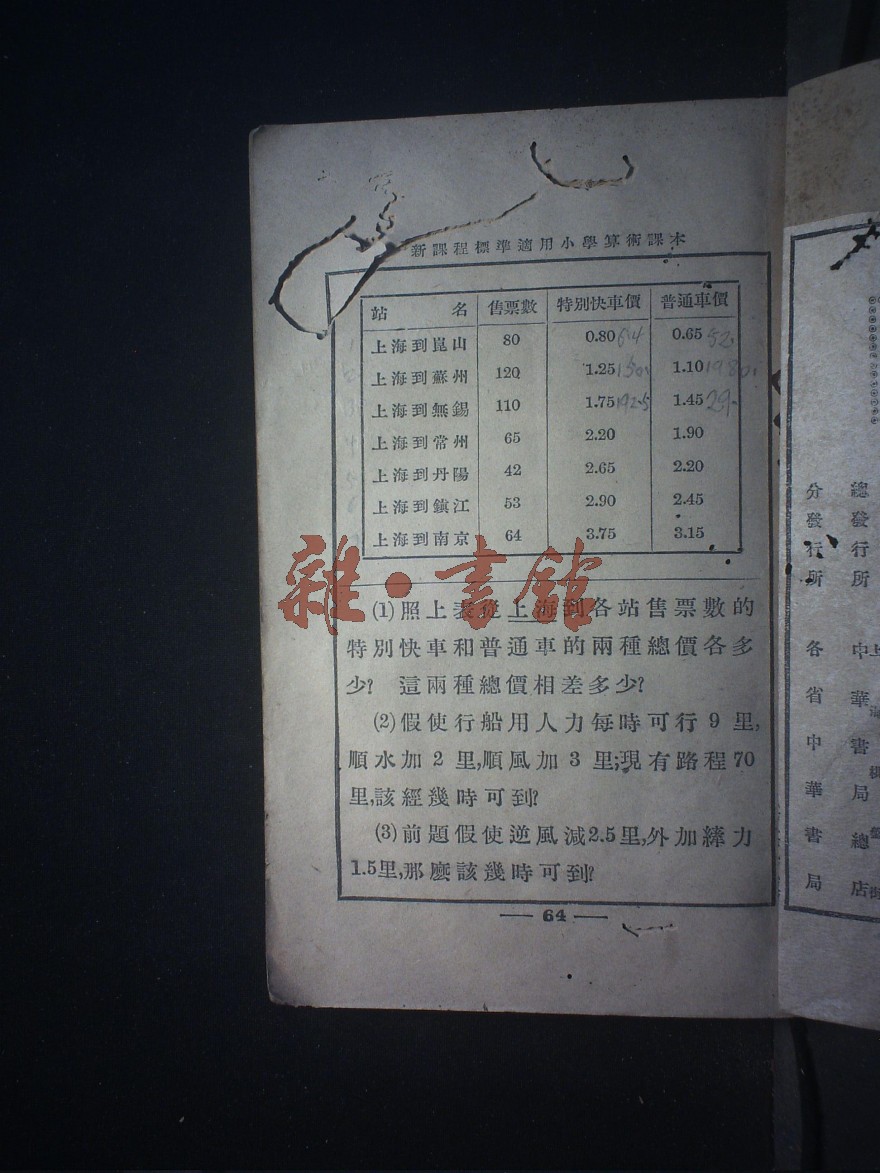 新課程標準適用小學算術課本
站名 售票數 特別快車價 普通車價
上海到崑山 80 0.80 64 0.65 52
上海到蘇州 120 1.25 150 1.10
上海到無錫 110 1.75 192.5 1.45
上海到常州 65 2.20 1.90
上海到丹陽 42 2.65 2.20
上海到鎮江 53 2.90 2.45
上海到南京 64 3.75 3.15
雜·書館
(1)照上表從上海到各站售票數的
特別快車和普通車的兩種總價各多
少? 這兩種總價相差多少?
(2)假使行船用人力每時可行9里,
順水加2里,順風加3里;現有路程70
里,該經幾時可到?
(3)前題假使逆風減2.5里,外加縴力
1.5里,那麼該幾時可到?
— 64 —
總發行所
中華書局總店
分發行所
各省中華書局